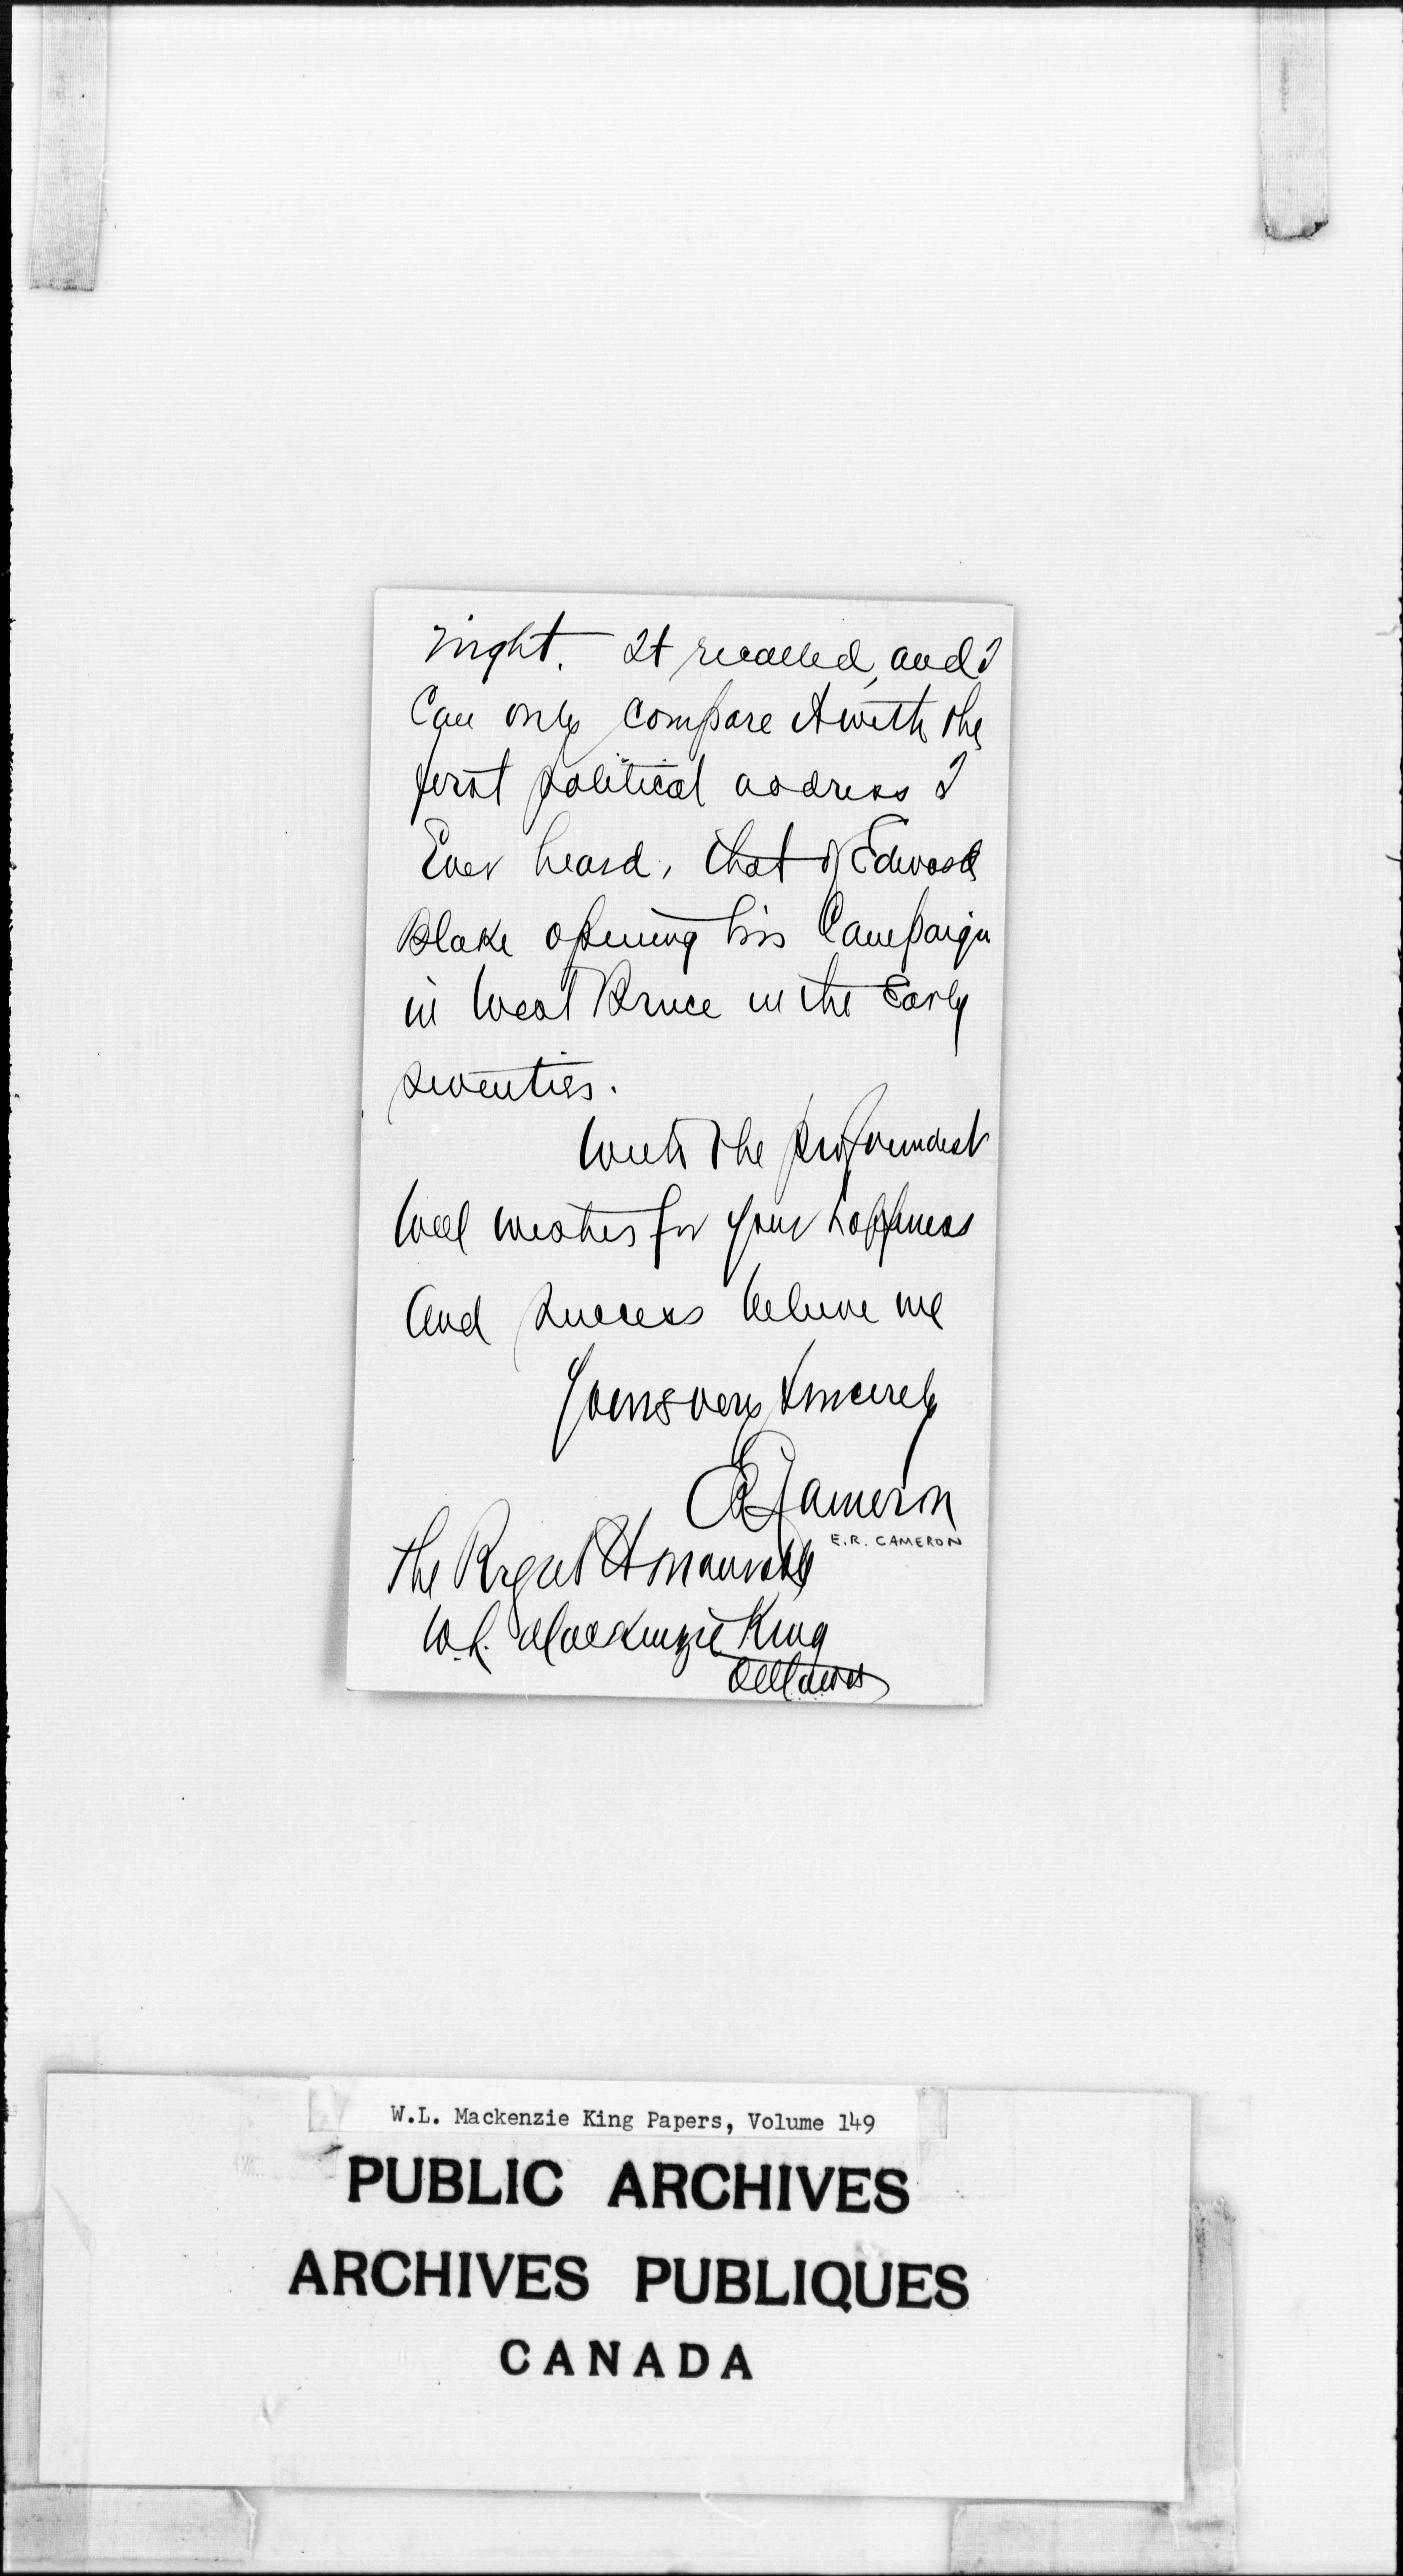 night. It recalled, and I
can only compare it with the
first political address I
Ever heard, that of Edward
Blake opening his Campaign
in West Bruce in the Early
seventies.
With the profoundest
well wishes for your happiness
and success believe me
Yours very sincerely
E R Cameron
E.R. CAMERON
The Right Honourable
W.L. Mackenzie King
Ottawa
W.L. Mackenzie King Papers, Volume 149
PUBLIC ARCHIVES
ARCHIVES PUBLIQUES
CANADA